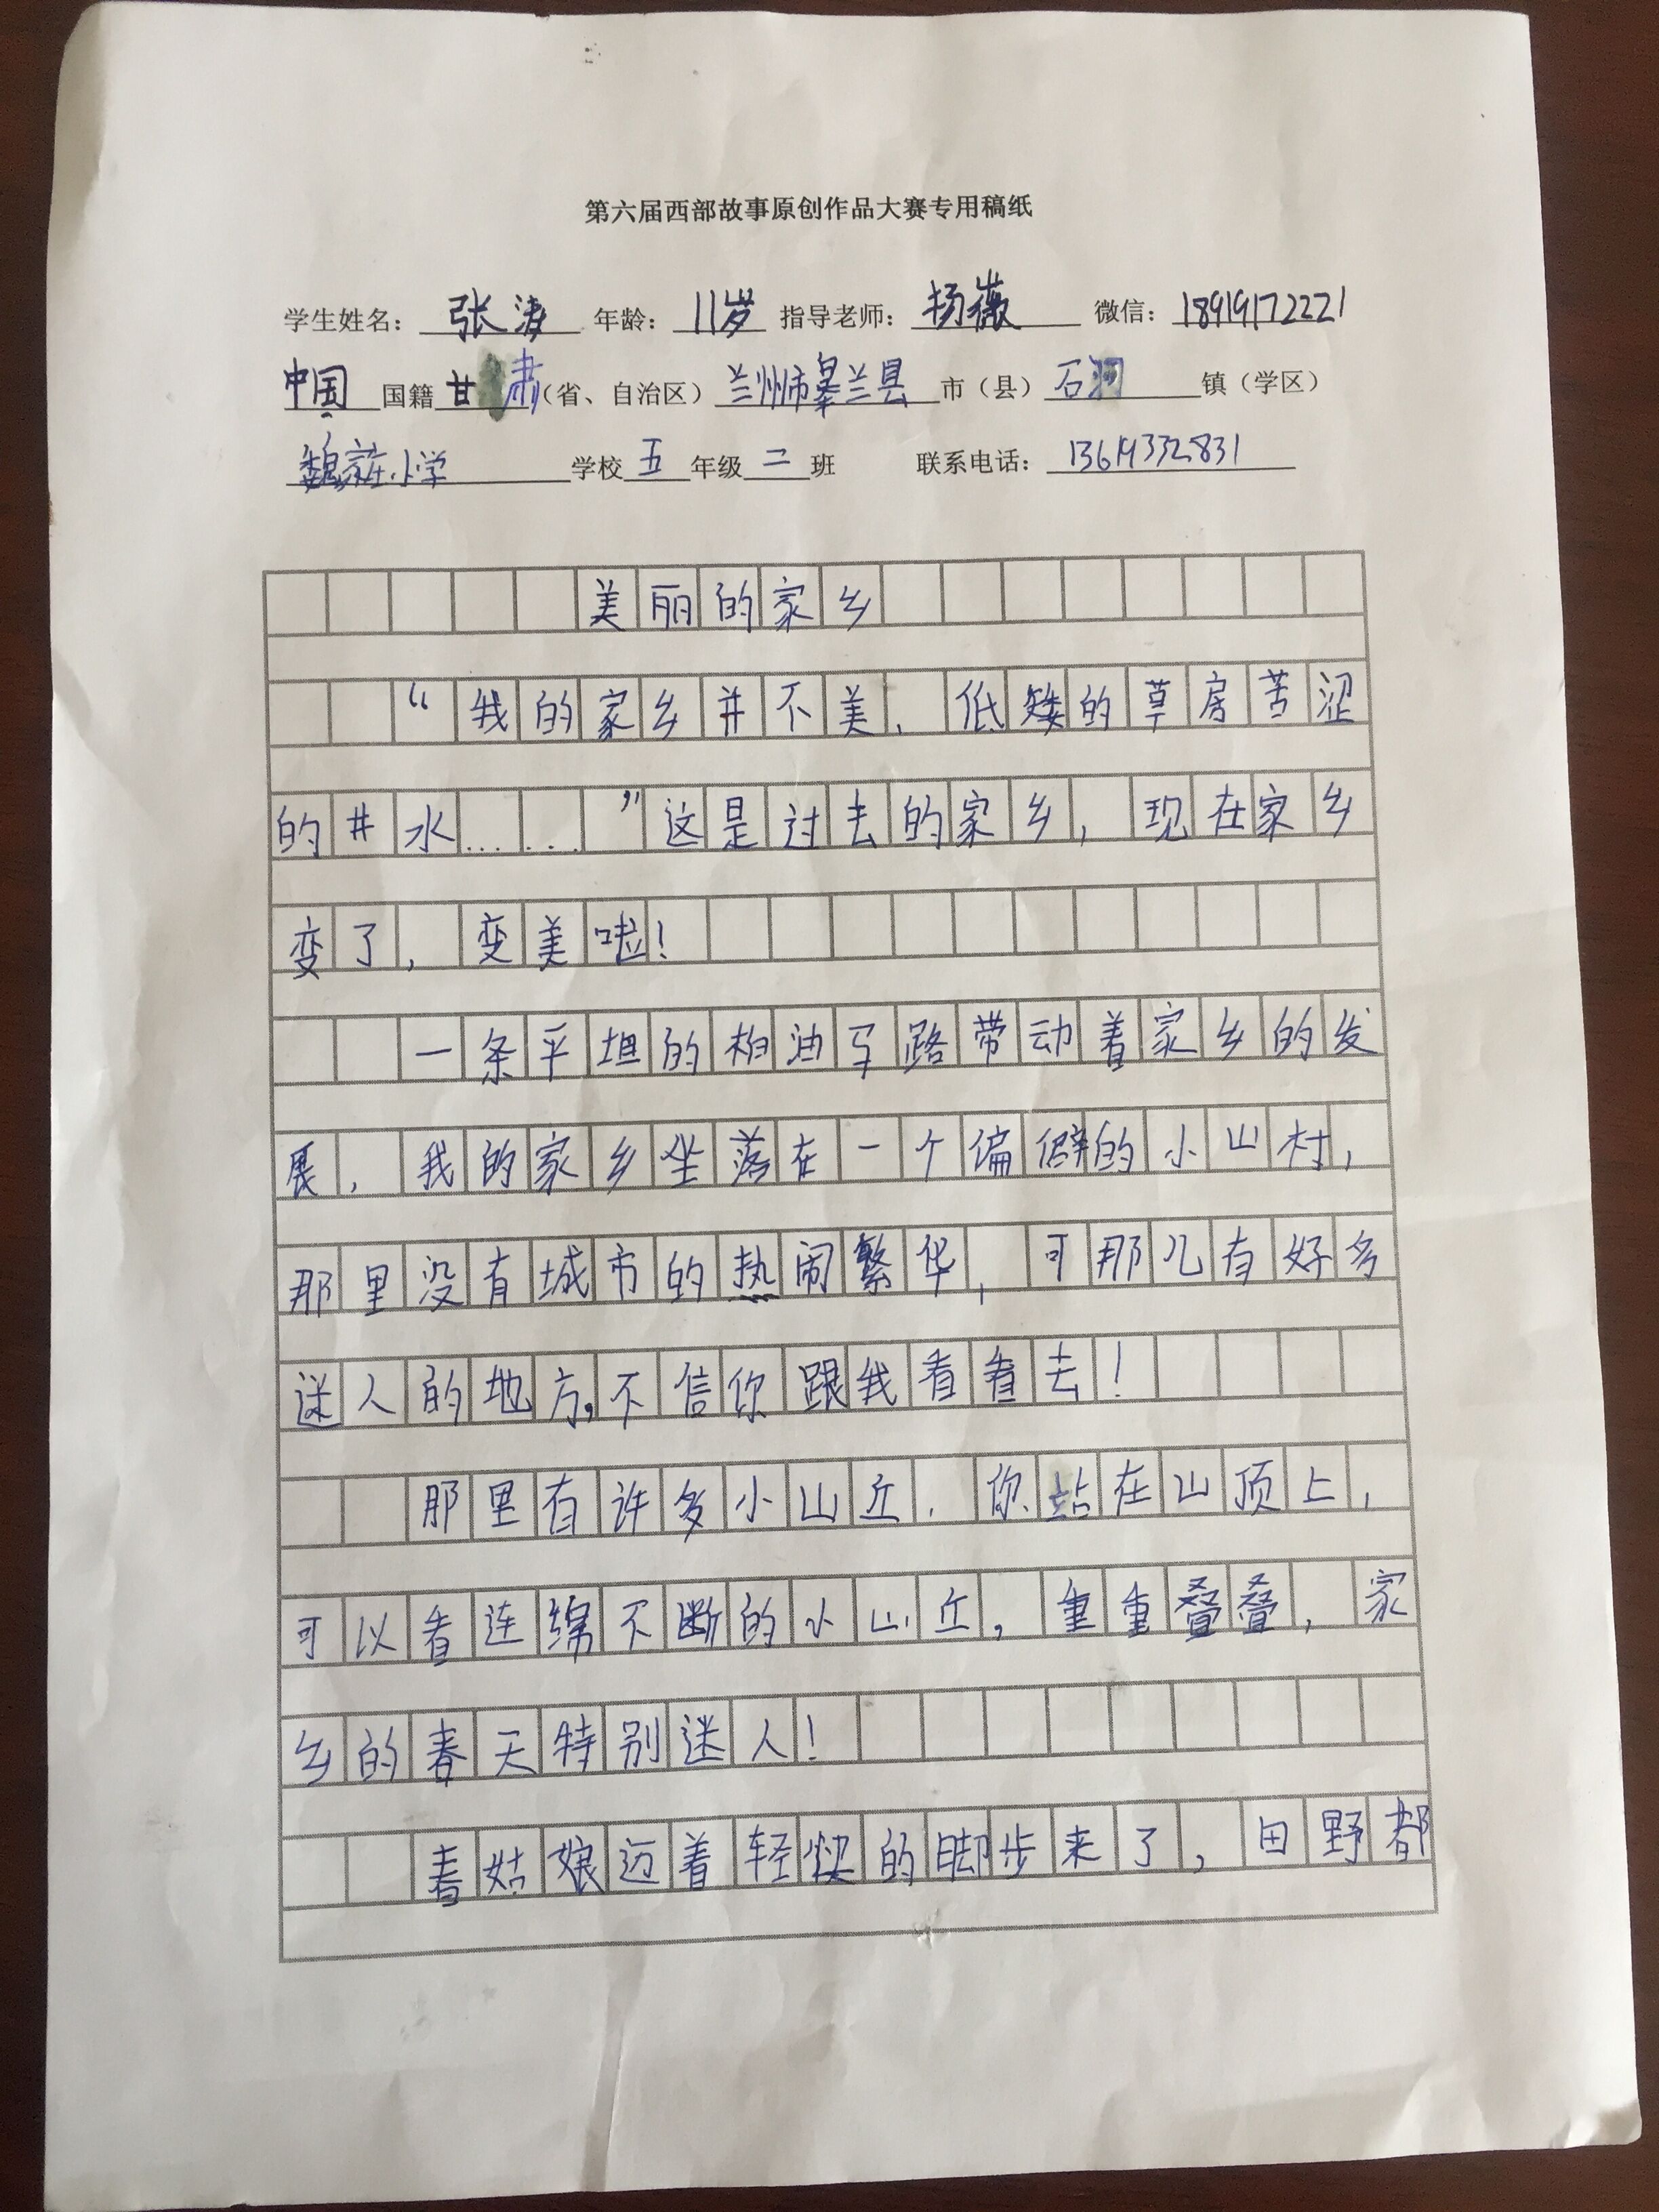 第六届西部故事原创作品大赛专用稿纸
学生姓名：张涛 年龄：11岁 指导老师：杨薇 微信：18919172221
中国 国籍 甘肃（省、自治区）兰州市皋兰县 市（县）石洞 镇（学区）
魏家庄小学 学校 五 年级 二 班 联系电话：13619332831
美丽的家乡
“我的家乡并不美，低矮的草房苦涩
的井水……”这是过去的家乡，现在家乡
变了，变美啦！
一条平坦的柏油马路带动着家乡的发
展，我的家乡坐落在一个偏僻的小山村，
那里没有城市的热闹繁华，可那儿有好多
迷人的地方，不信你跟我看看去！
那里有许多小山丘，你站在山顶上，
可以看连绵不断的小山丘，重重叠叠，家
乡的春天特别迷人！
春姑娘迈着轻快的脚步来了，田野都